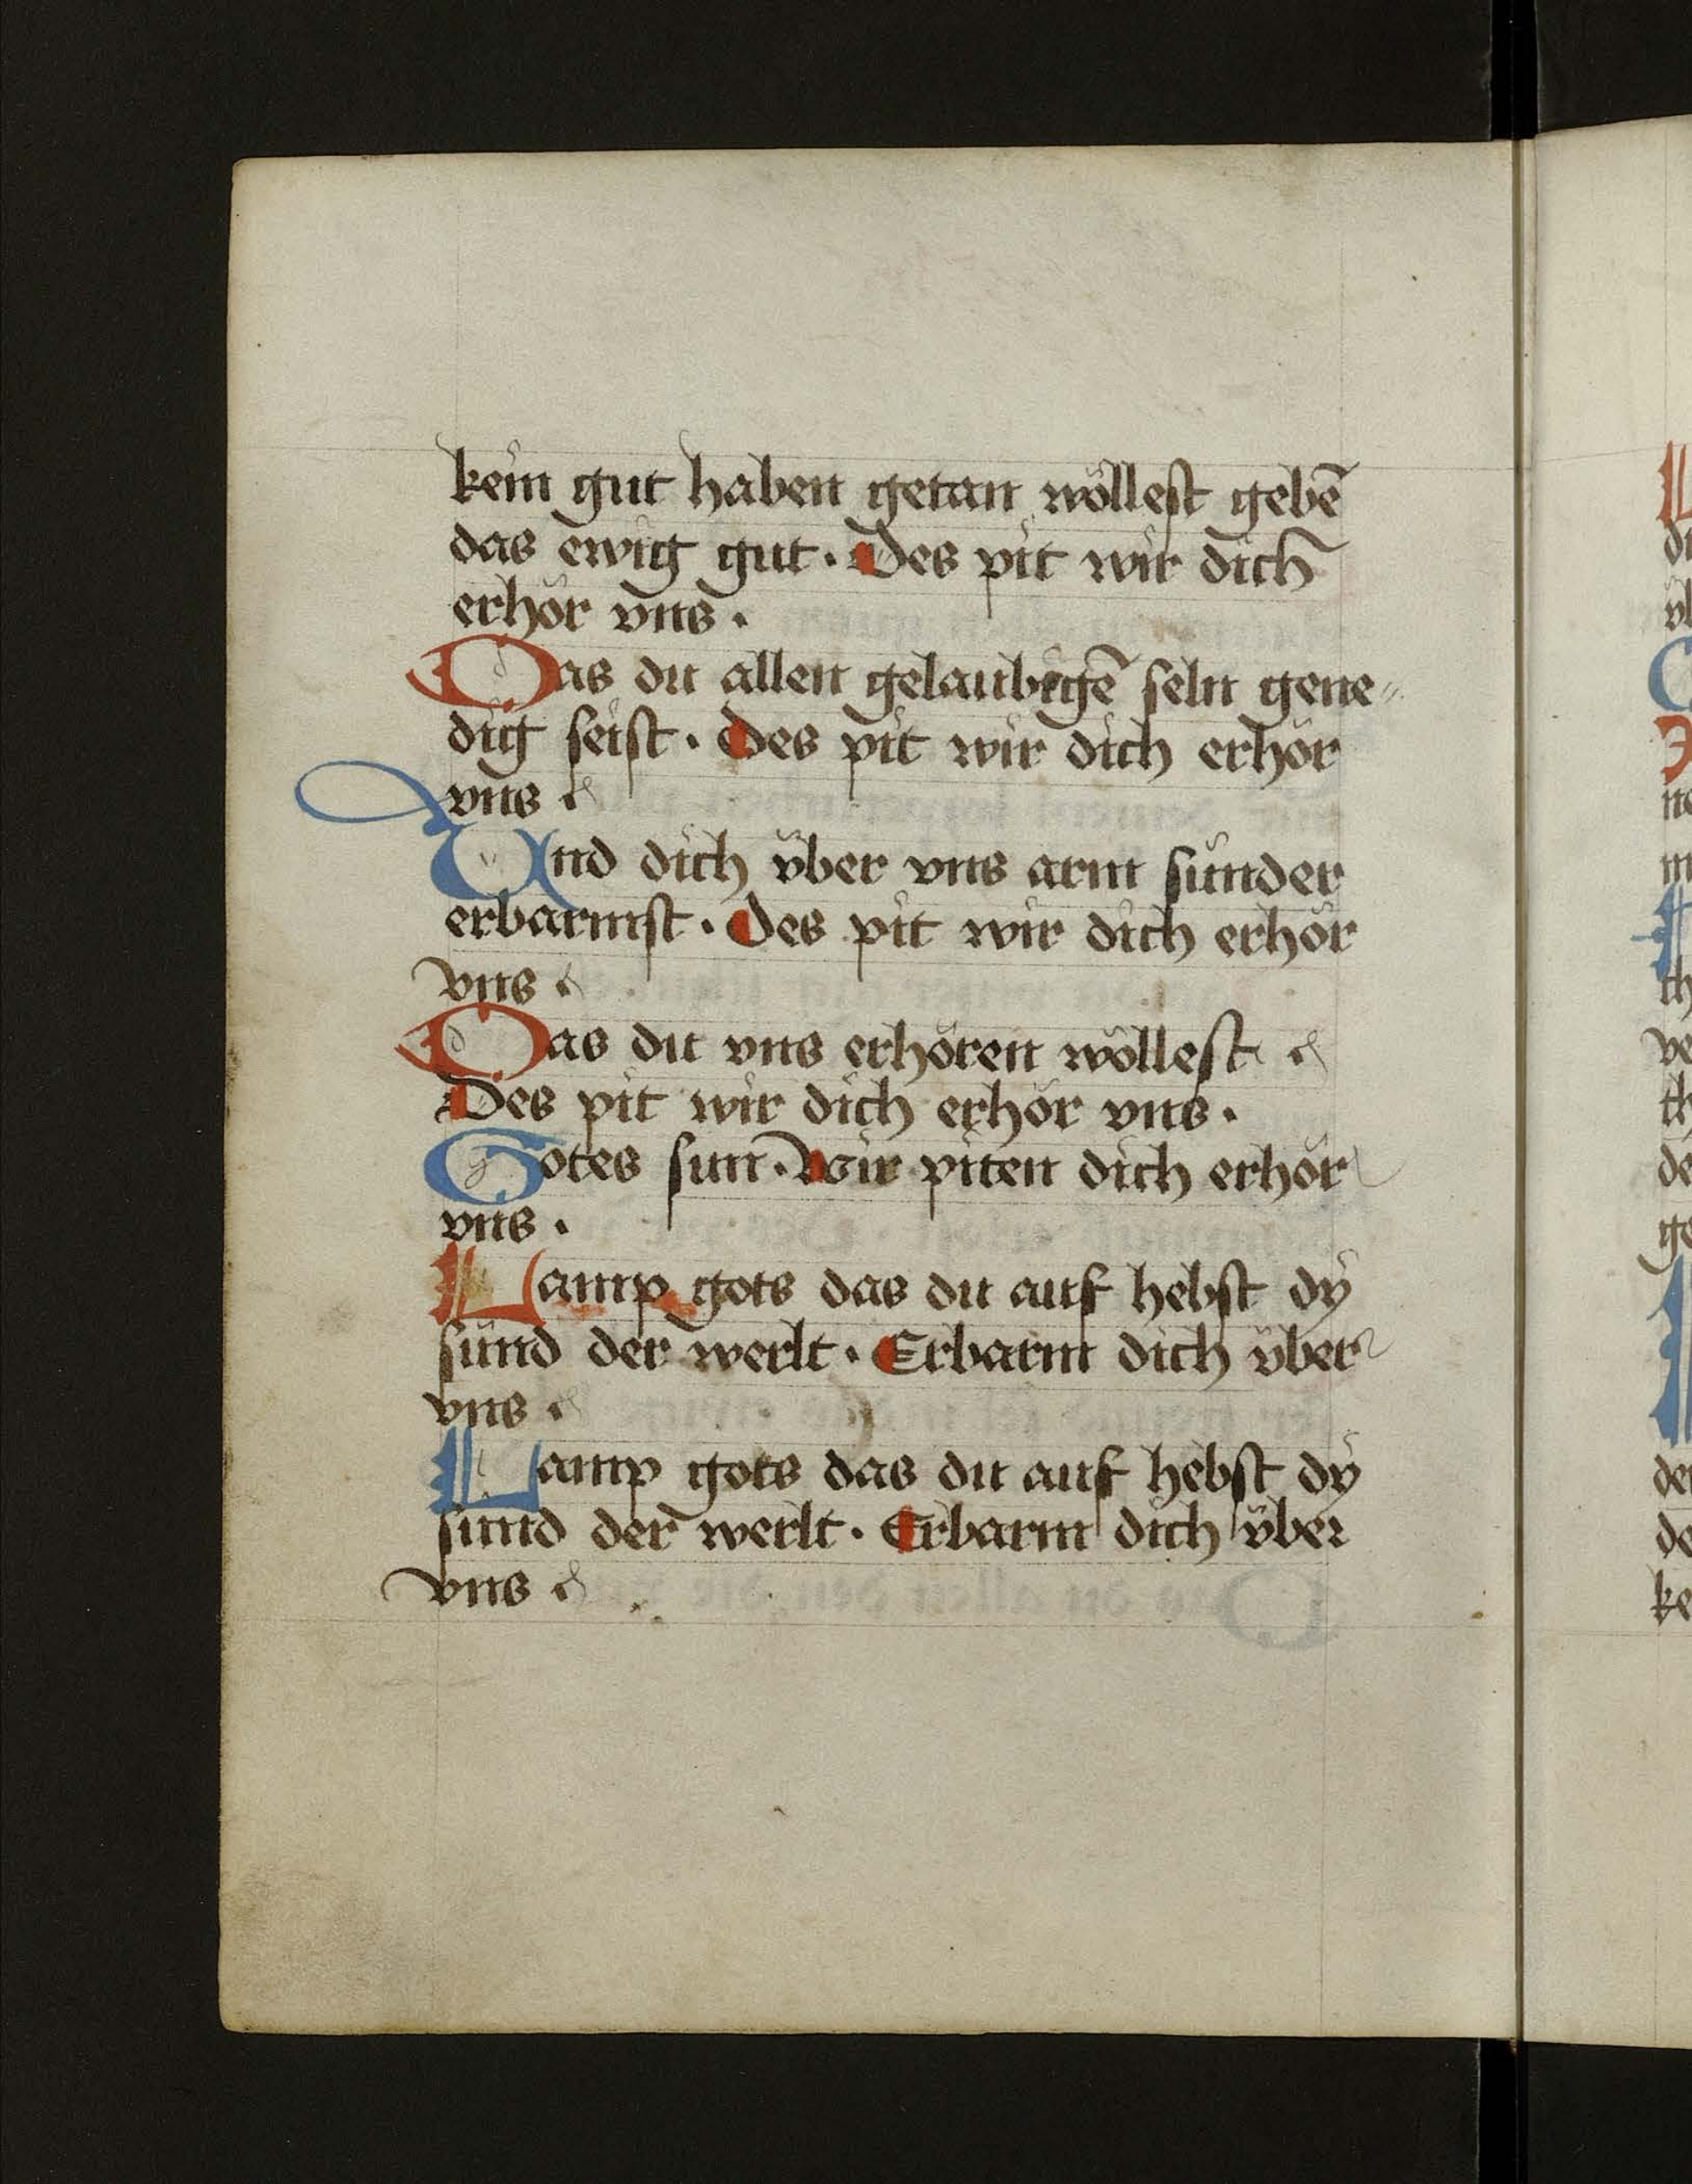 kein gut haben getan wöllest gebē
das ewig gut · Des pit wir dich
erhör vns ·
Das du allen gelaubigē seln gene„
dig seist · Des pit wir dich erhör
vns ·
Vnd dich v̈ber vns arm sünder
erbarmst · Des pit wir dich erhör
vns ·
Das du vns erhören wöllest
Des pit wir dich erhör vns ·
Gotes sun · Wir piten dich erhör
vns ·
Lamp gots das du auf hebst dy
sünd der werlt · Erbarm dich v̈ber
vns ·
Lamp gots das du auf hebst dy
sünd der werlt · Erbarm dich v̈ber
vns ·